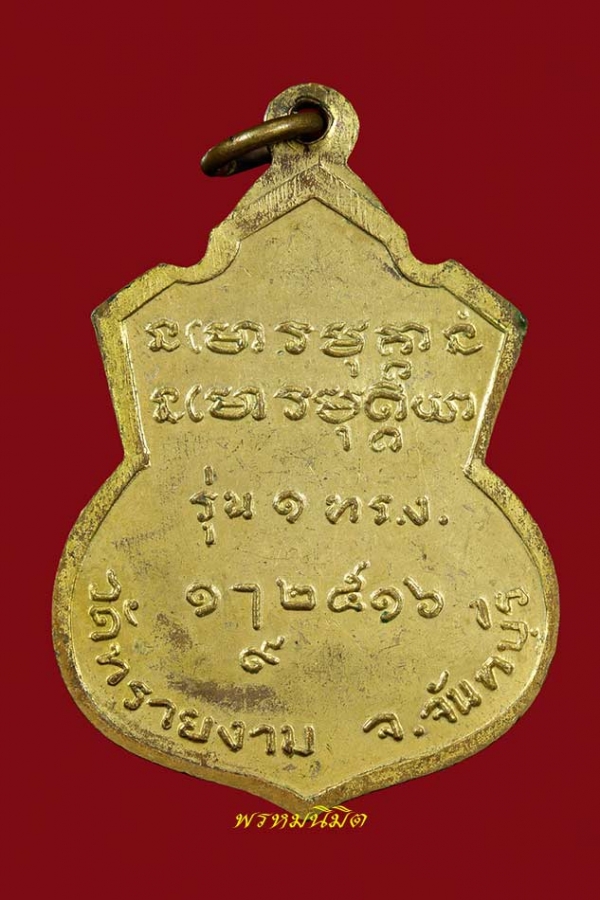 នមោវិមុត្តានំ
នមោវិមុត្តិយា
รุ่น ๑ ทร.ง.
๑ ๅ ๒๕๑๖
๙
วัดทรายงาม จ.จันทบุรี
พรหมนิมิต